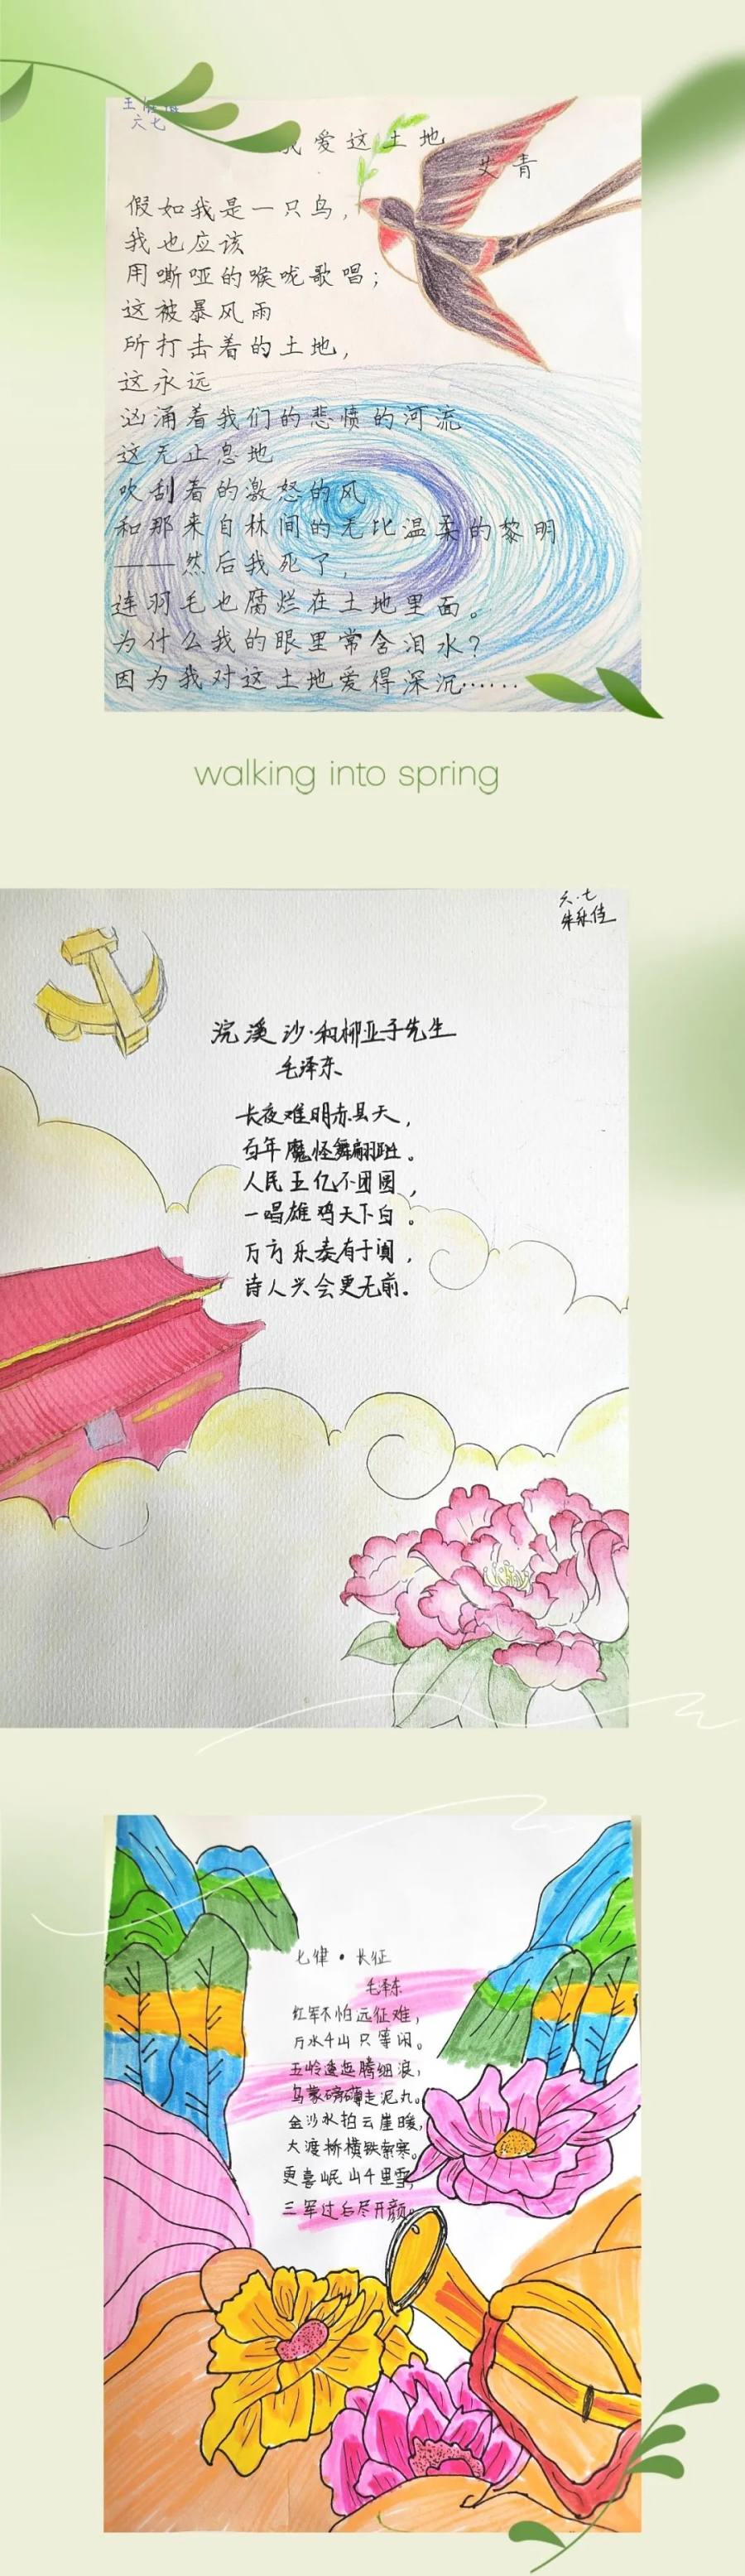 六七
我爱这土地
艾青
假如我是一只鸟，
我也应该
用嘶哑的喉咙歌唱；
这被暴风雨
所打击着的土地，
这永远
汹涌着我们的悲愤的河流
这无止息地
吹刮着的激怒的风
和那来自林间的无比温柔的黎明
——然后我死了，
连羽毛也腐烂在土地里面。
为什么我的眼里常含泪水？
因为我对这土地爱得深沉……
walking into spring
六·七
浣溪沙·和柳亚子先生
毛泽东
长夜难明赤县天，
百年魔怪舞翩跹。
人民五亿不团圆，
一唱雄鸡天下白。
万方乐奏有于阗，
诗人兴会更无前。
七律·长征
毛泽东
红军不怕远征难，
万水千山只等闲。
五岭逶迤腾细浪，
乌蒙磅礴走泥丸。
金沙水拍云崖暖，
大渡桥横铁索寒。
更喜岷山千里雪，
三军过后尽开颜。